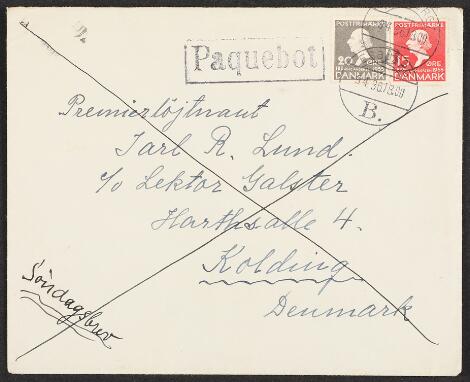 Paquebot
POSTFRIMÆRKE
20 ØRE
DANMARK
POSTFRIMÆRKE
15 ØRE
DANMARK
B.
Premierløjtnaut
Jarl R. Lund.
c/o Lektor Galster
Harthsalle 4.
Kolding
Denmark
Söndagsbrev